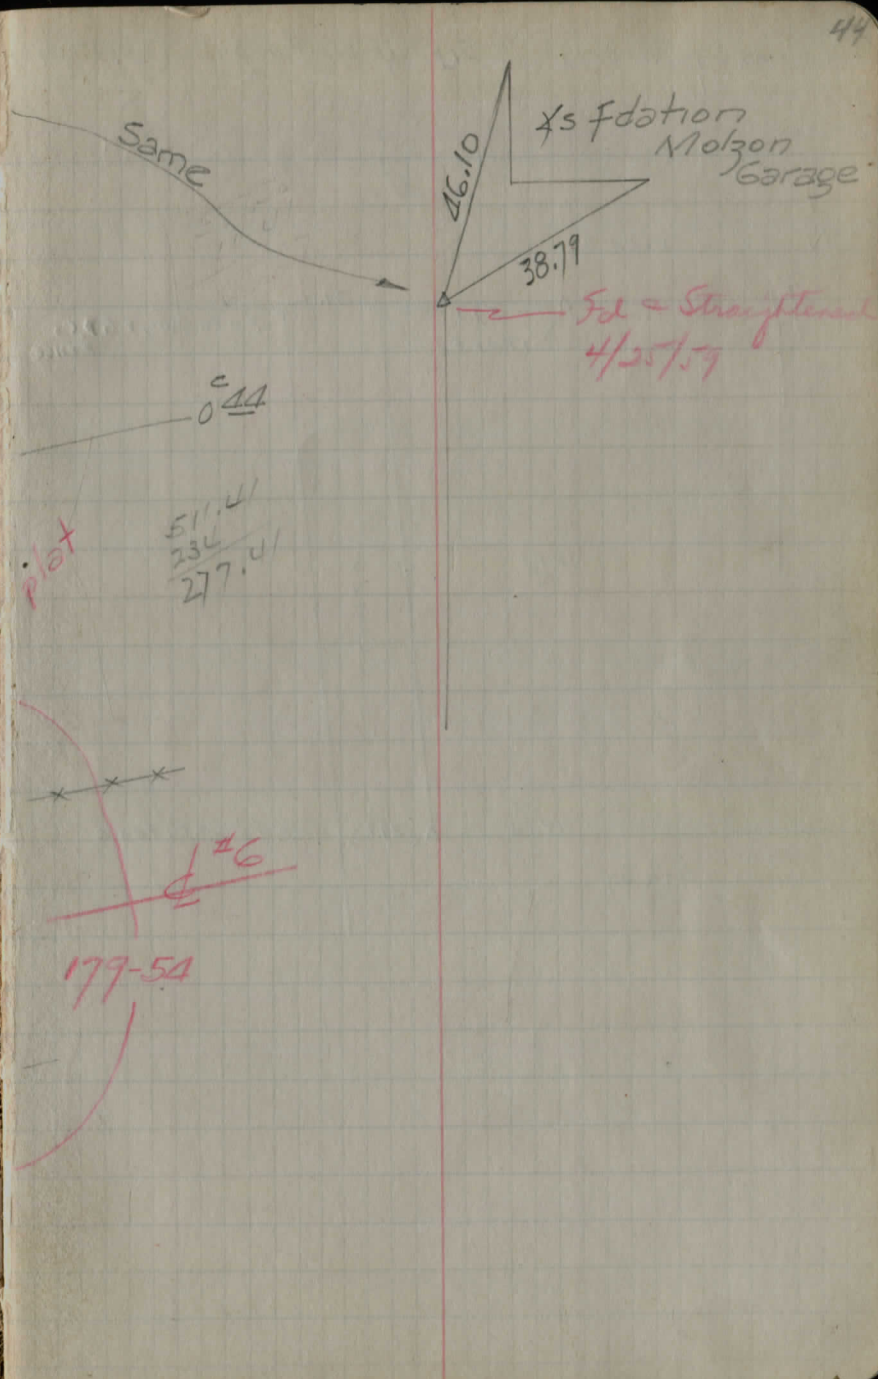 44
Same
46.10
∡s Fdation
Molzon
Garage
38.79
Fd & Straightened
4/25/59
0 c 44
plat
511.41
234
277.41
℄ #6
179-54